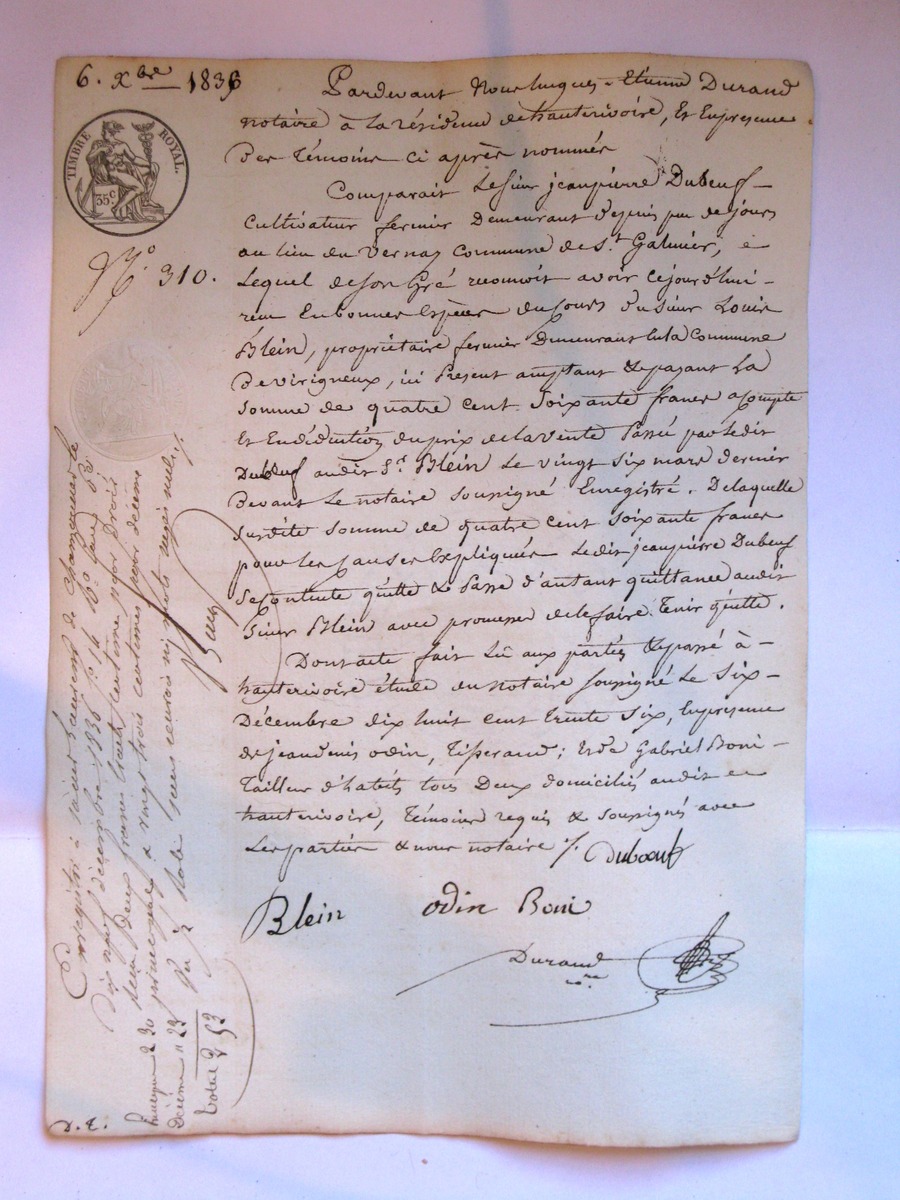 6. Xbre 1836
TIMBRE ROYAL.
35c
N.° 310.
Pardevant Nous hugues-Etienne Durand
notaire à la résidence de hauterivoire, Et En presence
Des Témoins ci après nommés
Comparait Le Sieur jeanpierre Dubeuf-
Cultivateur fermier Demeurant Depuis peu de jours
au lieu du Vernay Commune de S.t Galmier,
Lequel de Son Gré reconnoit avoir Cejourd'hui
recu En bonnes Espèces du Cours du Sieur Louis
Blein, propriétaire fermier Demeurant En la Commune
De virigneux, ici Present acceptant & payant La
Somme de quatre Cent Soixante francs acompte
Et En déduction du prix de la vente Passé par Ledit
Dubeuf audit S.r Blein Le vingt Six mars dernier
Devant Le notaire Soussigné Enregistré. De laquelle
Susdite Somme de quatre Cent Soixante francs
pour Les Causes Expliquées Ledit jeanpierre Dubeuf
Se Contente quitte & Passe d'autant quittance audit
Sieur Blein avec promesse de le faire Tenir quitte.
Dont acte fait Lû aux parties & passé à-
hauterivoire étude du notaire Soussigné Le Six-
Décembre dix huit Cent trente Six, En presence
de jeandenis Odin, Tisserand; Et de Gabriel Boni-
Tailleur d'habits tous Deux domiciliés audit
hauterivoire, Témoins requis & Soussignés avec
Les parties & nous notaire /. Duboeuf
Blein
Odin Boni
Durand
nre
Enregistré à Saint Laurent de Chamousset le
dix neuf décembre 1836 f° 14 R° Case 6
deux francs trente centimes pour droit
principal & vingt trois centimes pour décime
mots rayés nuls /.
2 30
Décime " 23
Total 2 53
D. E.